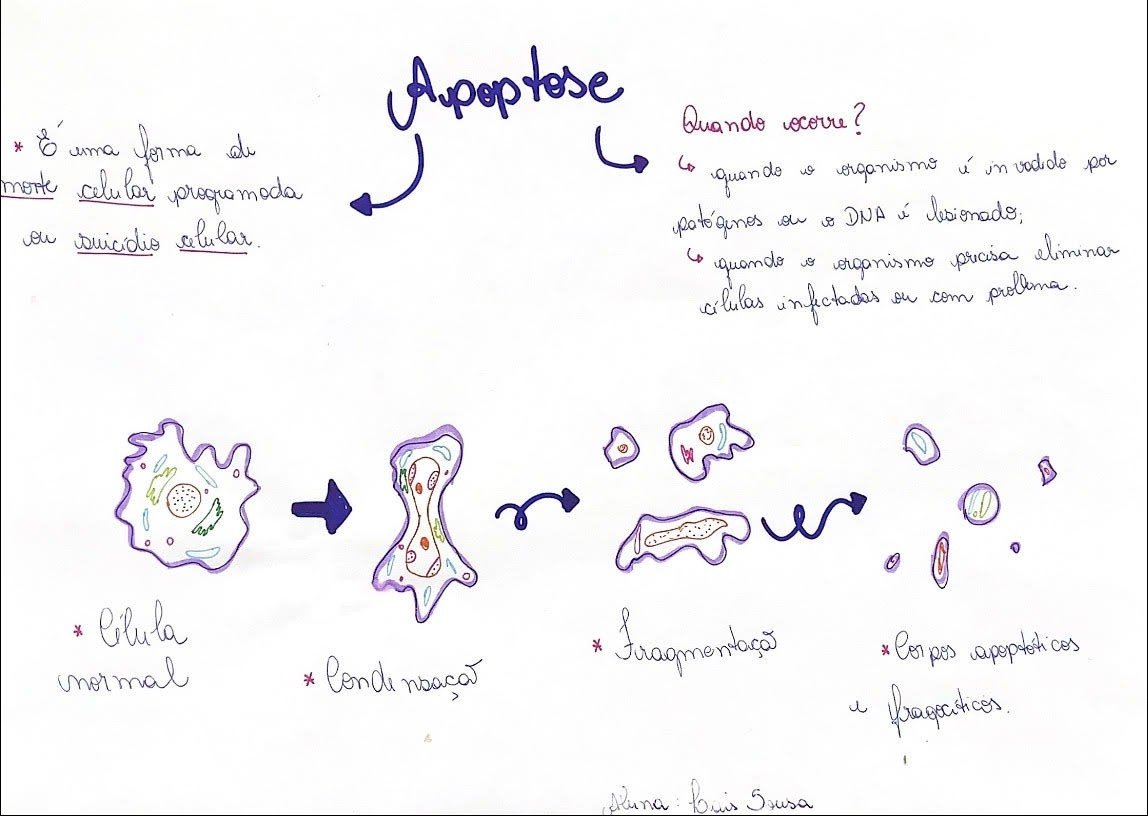 Apoptose
* É uma forma de
morte celular programada
ou suicídio celular.
Quando ocorre?
↳ quando o organismo é invadido por
patógenos ou o DNA é lesionado;
↳ quando o organismo precisa eliminar
células infectadas ou com problema.
* Célula
normal
* Condensação
* Fragmentação
* Corpos apoptóticos
e fragocíticos.
Aluna: Sousa